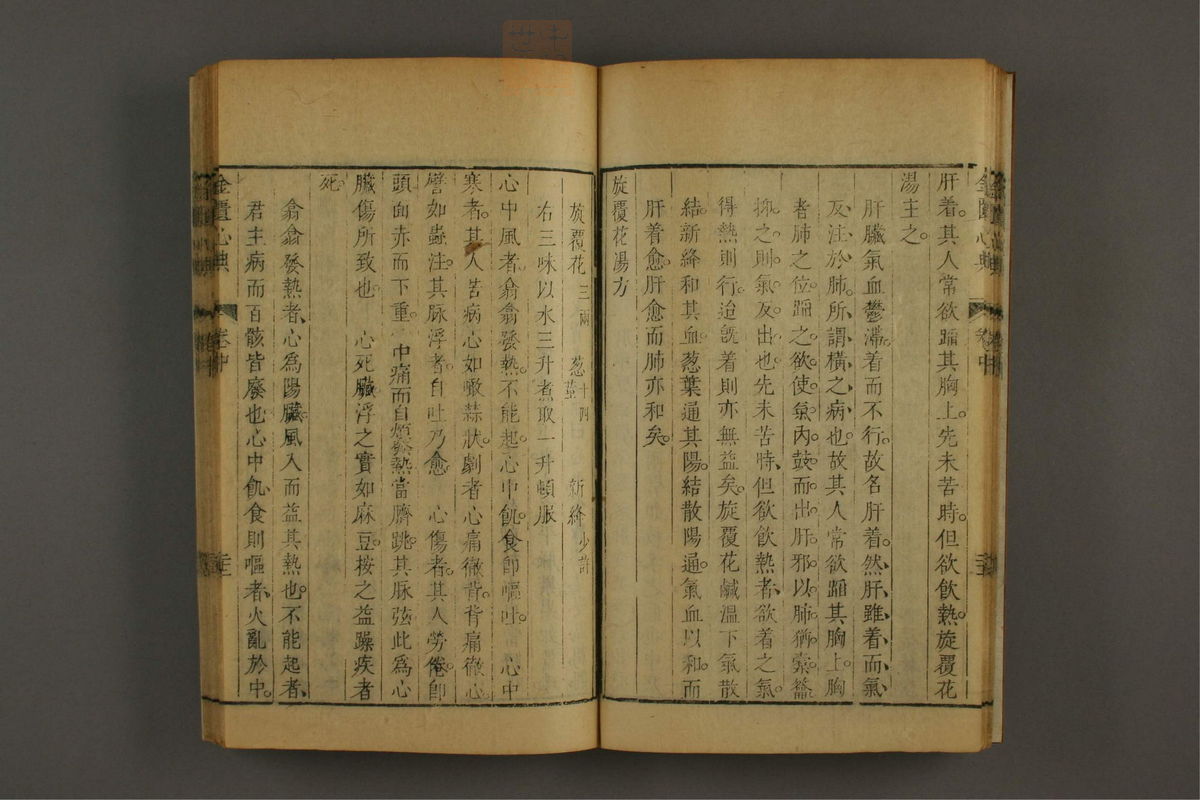 肝着。其人常欲蹈其胸上。先未苦時。但欲飲熱。旋覆花
湯主之。
肝臟氣血鬱滯。着而不行。故名肝着。然肝、雖着、而氣、
反、注於肺、所、謂、橫之、病也。故其人常欲蹈其胸上。胸
者肺之位。蹈之欲使氣內鼓而出肝邪。以肺猶橐籥。
抑之則氣反出也。先未苦時、但欲飲熱者、欲着之氣。
得熱則行。迨旣着則亦無益矣。旋覆花鹹溫下氣散
結。新絳和其血。葱葉通其陽。結散陽通。氣血以和。而
肝着愈。肝愈而肺亦和矣。
旋覆花湯方
旋覆花三兩 葱莖十四 新絳少許
右三味以水三升煮取一升頓服
心中風者。翕翕發熱。不能起。心中飢。食卽嘔吐。 心中
寒者。其人苦病心如噉蒜狀。劇者心痛徹背。背痛徹心。
譬如蠱注。其脉浮者。自吐乃愈。 心傷者。其人勞倦。卽
頭面赤而下重。中痛而自煩。發熱當臍跳。其脉弦此爲心
臟傷所致也。 心死臟。浮之實如麻豆。按之益躁疾者
死。
翕翕發熱者、心爲陽臟。風入而益其熱也。不能起者、
君主病而百骸皆廢也。心中飢、食則嘔者、火亂於中。
金匱心典 卷中
金匱心典 卷中